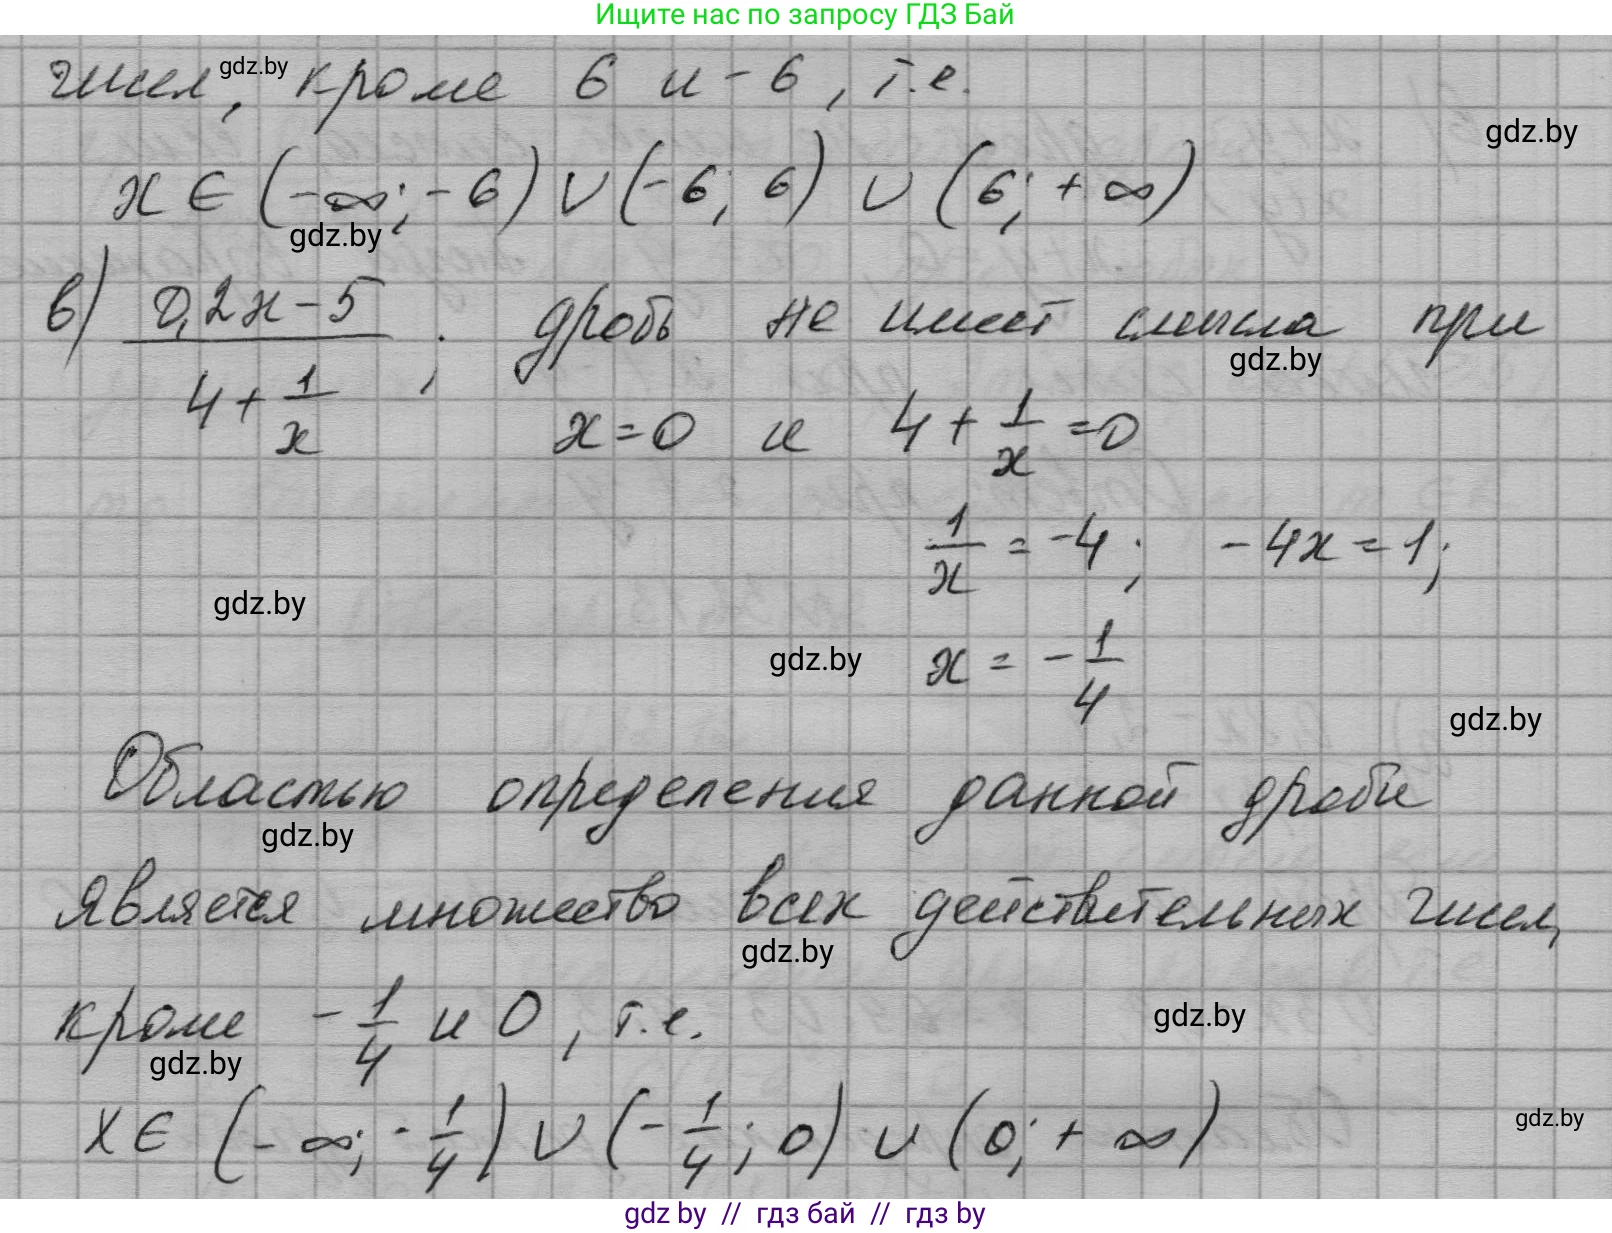 Ищите нас по запросу ГДЗ Бай
чисел, кроме 6 и -6, т.е.
gdz.by
gdz.by
x ∈ (-∞; -6) ∪ (-6; 6) ∪ (6; +∞)
gdz.by
в) (0,2x - 5)/(4 + 1/x); дробь не имеет смысла при
gdz.by
x = 0 и 4 + 1/x = 0
1/x = -4; -4x = 1;
gdz.by
x = -1/4
gdz.by
gdz.by
Областью определения данной дроби
gdz.by
является множество всех действительных чисел,
gdz.by
кроме -1/4 и 0, т.е.
gdz.by
gdz.by
x ∈ (-∞; -1/4) ∪ (-1/4; 0) ∪ (0; +∞)
gdz.by
gdz by // гдз бай // гдз by